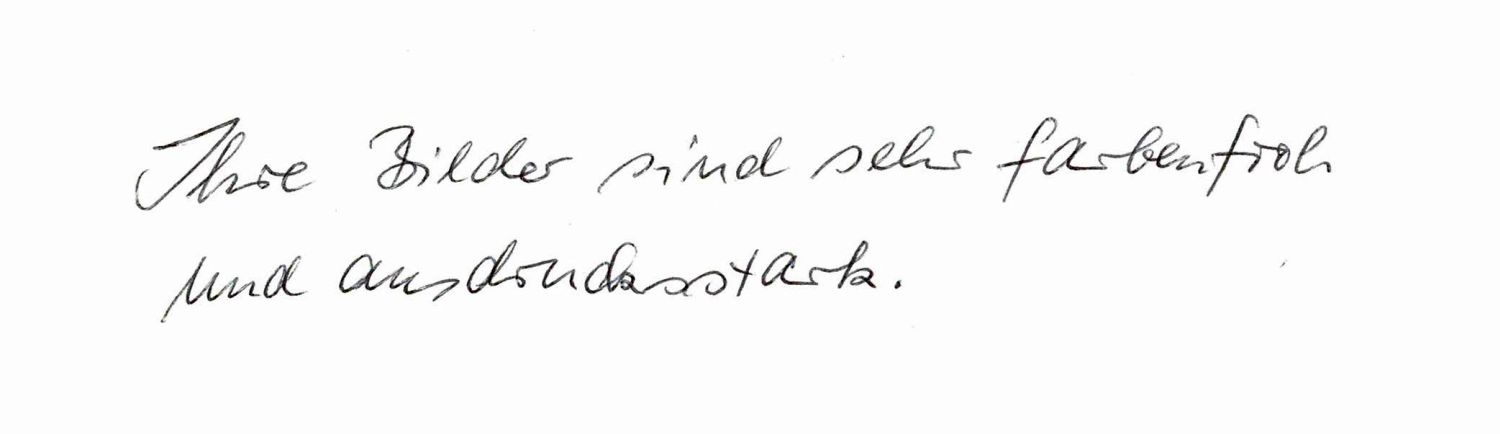 Ihre Bilder sind sehr farbenfroh
und ausdrucksstark.